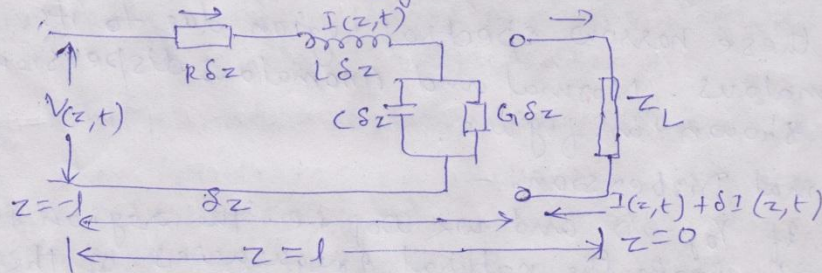 I(z,t)
Rδz Lδz
V(z,t) Cδz Gδz Z_L
z=-l δz I(z,t) + δI(z,t)
z=l z=0